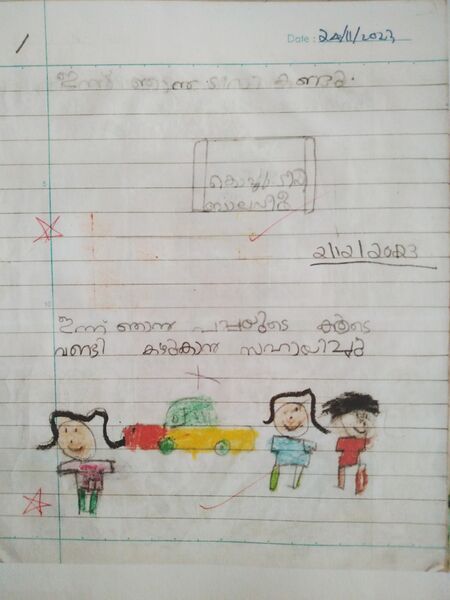 1
Date: 24/11/2023
ഇന്ന് ഞാൻ ടിവി കണ്ടു.
കൊച്ചു ടിവി
ബാലവീർ
2/12/2023
ഇന്ന് ഞാൻ പപ്പയുടെ കൂടെ
വണ്ടി കഴുകാൻ സഹായിച്ചു